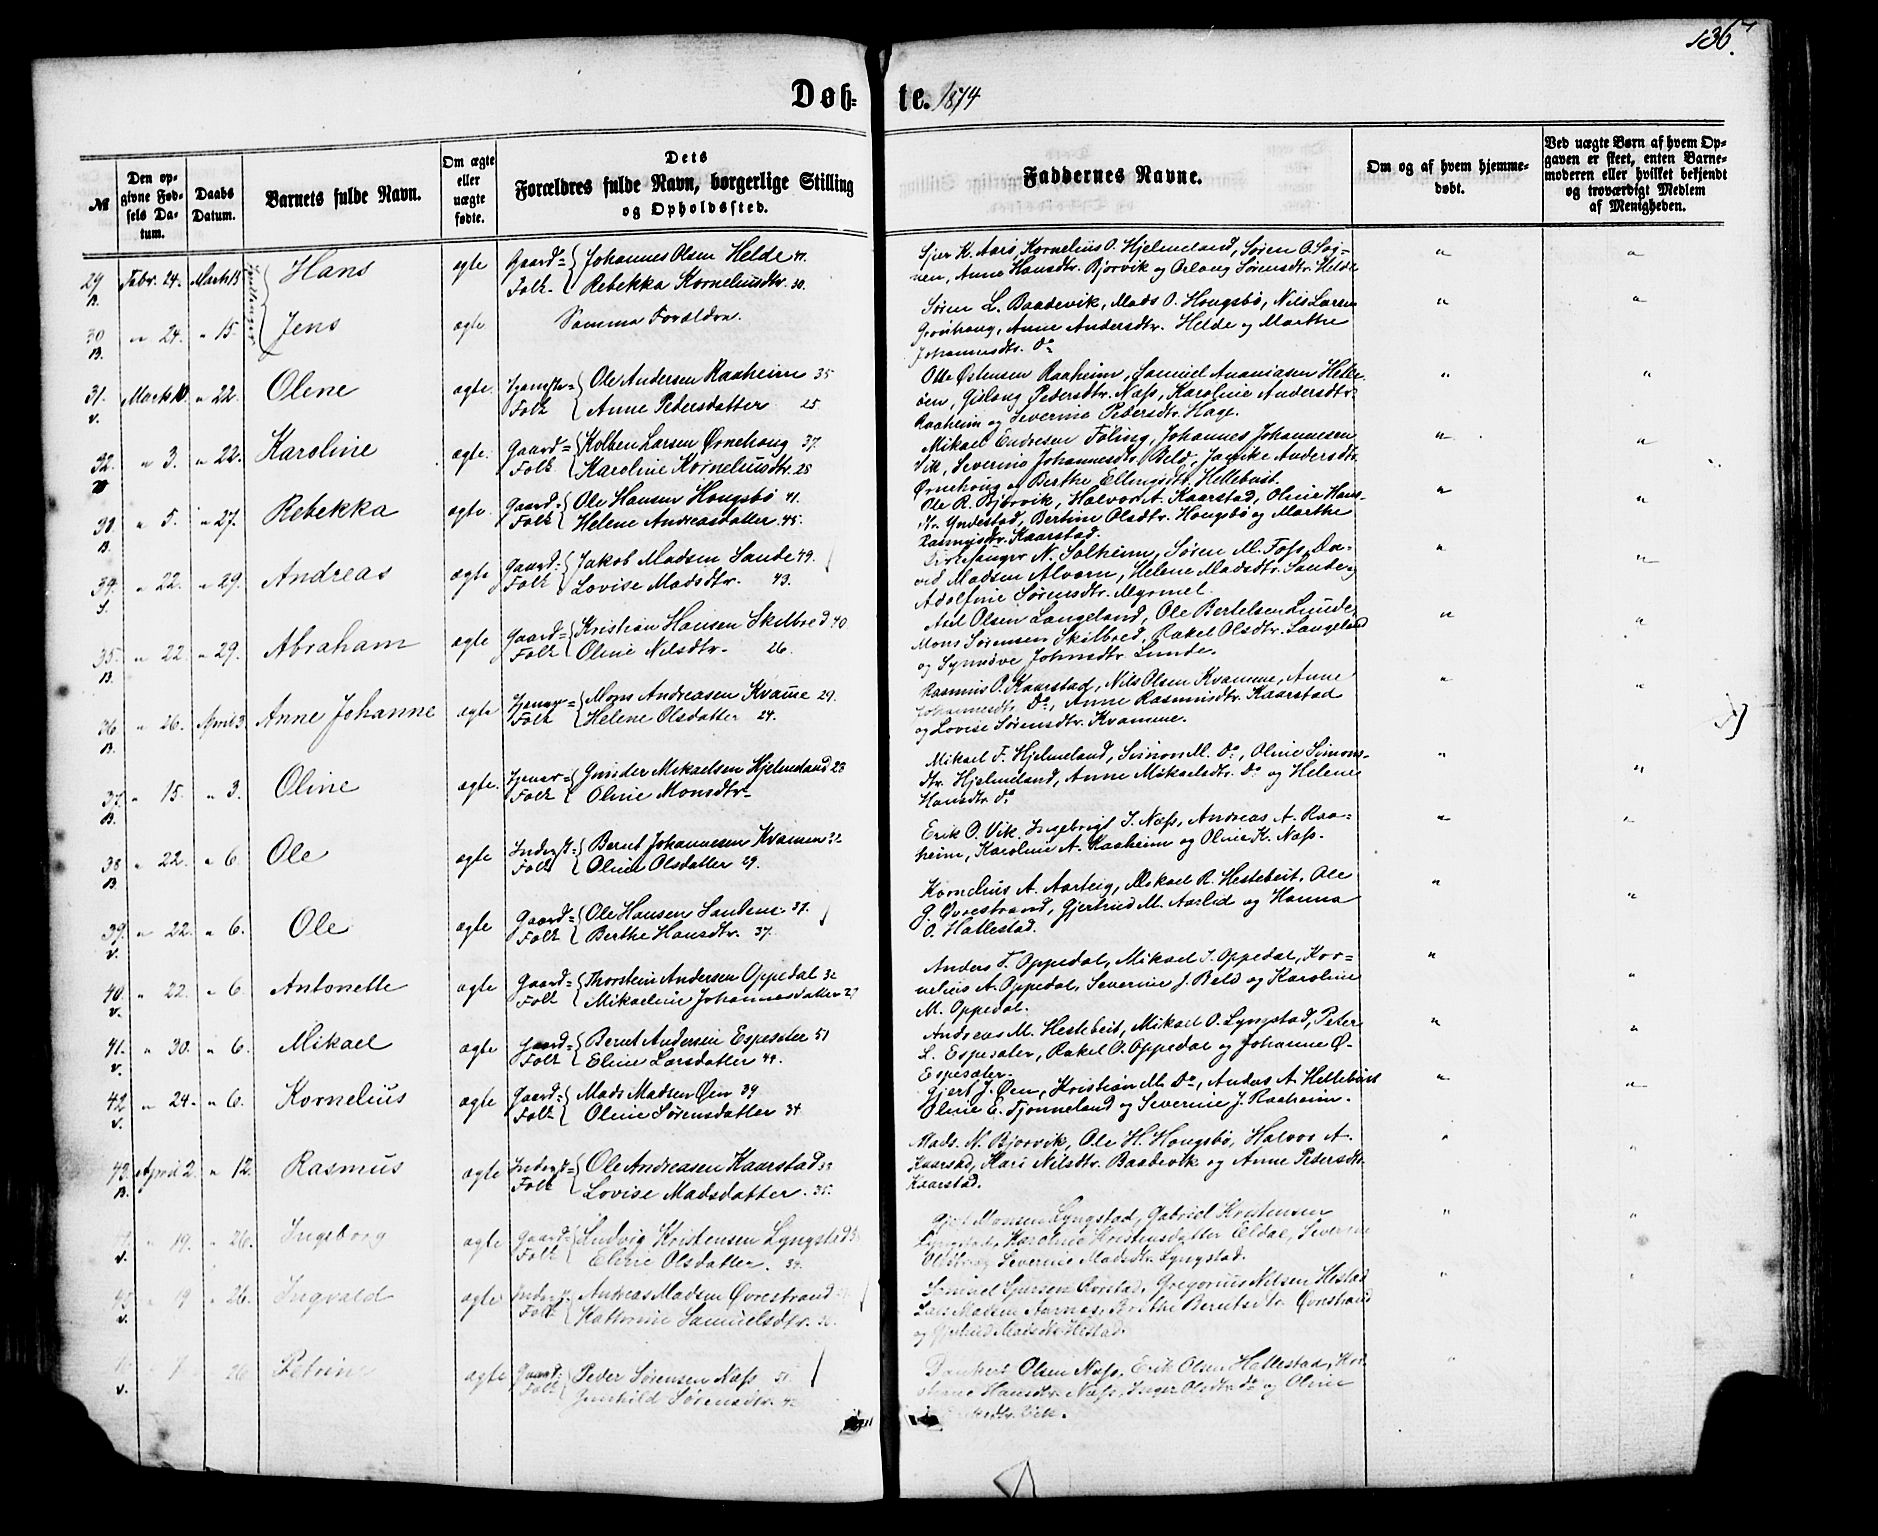 136.
Døb= te. 1874
№
Den op-
givne Fød-
sels Da-
tum.
Daabs
Datum.
Barnets fulde Navn.
Om ægte
eller
uægte
fødte.
Dets
Forældres fulde Navn, borgerlige Stilling
og Opholdssted.
Faddernes Navne.
Om og af hvem hjemme-
døbt.
Ved uægte Børn af hvem Op-
gaven er skeet, enten Barne-
moderen eller hvilket bekjendt
og troværdigt Medlem
af Menigheden.
29 B. Febr. 24. Marts 15 Hans ægte Gaard= Folk Johannes Olsen Helde 41.
Rebekka Korneliusdtr. 30.
Kornelius O. Hjelmeland, Søren O. Søg-
nen, Anne Hansdtr. Bjorvik og Sørensdtr. Helde
30 B. " 24. " 15. Jens ægte Samme Forældre.
Søren L. Baadevik, Mads O. Hougsbø, Nils Larsen
Grønhoug, Anne Andersdtr. Helde og Marthe
Johannesdtr. Do
31. V. Marts 10. " 22. Olene ægte. Folk Ole Andersen Raaheim 35
Anne Pedersdatter 25.
Otte Østensen Raaheim, Samuel Ananiasen Helle-
øen, Gislaug Pedersdtr. Næss, Karoline Andersdtr.
Raaheim og Severine Pedersdtr. Hage.
32. V " 3. " 22. Karoline ægte. Gaard= Folk Kolben Larsen Ørnehoug 37.
Karoline Korneliusdtr. 25
Mikael Endresen Føling, Johannes Johannesen
Vik, Severine Johannesdtr. Beld, Jamke Andersdtr.
Ørnehoug og Berthe Ellingsdtr. Hellebust.
33. B. " 5. " 27. Rebekka ægte. Gaard= Folk Ole Hansen Hougsbø 41.
Helene Andreasdatter 45.
Ole R. Bjørvik, Halvor A. Kaarstad, Oline Hans-
dtr. Yndestad, Bertine Olsdtr. Hougsbø og Marthe
Rasmusdtr. Kaarstad.
34. S. " 22. " 29. Andreas ægte Gaard= Folk Jakob Madsen Sande 49.
Lovise Madsdtr. 43.
Kirkesanger N. Solheim, Søren M. Foss, Da-
vid Madsen Alvorn, Helene Madsdtr. Sande og
Adolfine Sørensdtr. Myrmel.
35. B. " 22. " 29. Abraham ægte Gaard= Folk Kristian Hansen Skilbred 40
Oline Nilsdtr. 26.
Anti Olsen Langeland, Ole Bertelsen Lunde,
Mons Sørensen Skilbred, Rakel Olsdtr. Langeland
og Synnøve Johnsdtr. Lunde.
36 B. " 26. April 3. Anne Johanne ægte Folk Mons Andreasen Kvamme 29.
Helene Olsdatter 24.
Rasmus O. Kaarstad, Nils Olsen Kvamme, Anne
Johannesdtr. Do, Anne Rasmusdtr. Kaarstad
og Lovise Sørensdtr. Kvamme.
37. B. " 15. " 3. Oline ægte. Folk Gunder Mikaelsen Hjelmeland 23
Oline Monsdtr.
Mikael F. Hjelmeland, Simon M. Do, Oline Simons-
dtr. Hjelmeland, Anne Mikaelsdtr. Do og Helene
Hansdtr. do
38 B " 22. " 6. Ole ægte Inderst= Folk Bernt Johannesen Kvamme 32
Oline Olsdatter 29.
Erik O. Vik, Ingebrigt S. Næss, Andreas A. Raa-
heim, Karoline A. Raaheim og Oline K. Næss.
39. V. " 22. " 6. Ole ægte Gaard= Folk Ole Hansen Sandene 37.
Berthe Hansdtr. 37.
Kornelius A. Aarteig, Mikael R. Hestebeit, Ole
G. Øvrestrand, Gjertrud M. Aarlid og Hanna
O. Hallestad.
40. V. " 22. " 6. Antonette ægte Gaard= Folk Thorstein Andersen Oppedal 32
Mikaeline Johannesdatter
Anders T. Oppedal, Mikael I. Oppedal, Kor=
nelius A. Oppedal, Severine J. Beld og Karoline
M. Oppedal.
41. V. " 30. " 6. Mikael ægte Gaard= Folk Bernt Andersen Espesæter 51
Eline Larsdatter 44.
Andreas M. Hestebeit, Mikael O. Lyngstad, Peter
L. Espesæter, Rakel O. Oppedal og Johanne Ø.
Espesæter.
42 V. " 24. " 6. Kornelius ægte Gaard= Folk Mads Madsen Øen 39
Oline Sørensdatter 34
Gjert J. Øen, Kristian M. Do, Anders A. Hellebust
Oline E. Tjønneland og Severine J. Raaheim.
43. B. April 2. " 12. Rasmus ægte Inderst= Folk Ole Andreasen Kaarstad 33
Lovise Madsdatter. 35.
Mads N. Bjorvik, Ole H. Hougsbø, Halvor A.
Kaarstad, Kari Nilsdtr. Baadevik og Anne Pedersdtr.
Kaarstad.
V. " 19. " 26. Ingeborg ægte Gaard= Folk Ludvig Kristensen Lyngstad
Eline Olsdatter. 34.
Monsen Lyngstad, Gabriel Kristensen
Lyngstad, Karoline Kristensdatter Eldal, Severine
og Severine Madsdtr. Lyngstad.
V. " 19 " 26. Ingvald ægte Inderst= Folk Andreas Madsen Øvrestrand
Kathrine Samuelsdtr.
Samuel Gregorius Nilsen Hestad
Lars Madsen Aarnes, Berthe Berntsdtr. Øvrestrand
og Gjertrud Madsdtr. Hestad.
V. 26 Petrine ægte Gaard= Folk Peder Sørensen Næss 51.
Gunhild Sørensdtr.
Dankert Olsen Næss, Erik Olsen Hallestad,
Hansdtr. Næss, Inger Olsdtr. do og Oline
Vik.